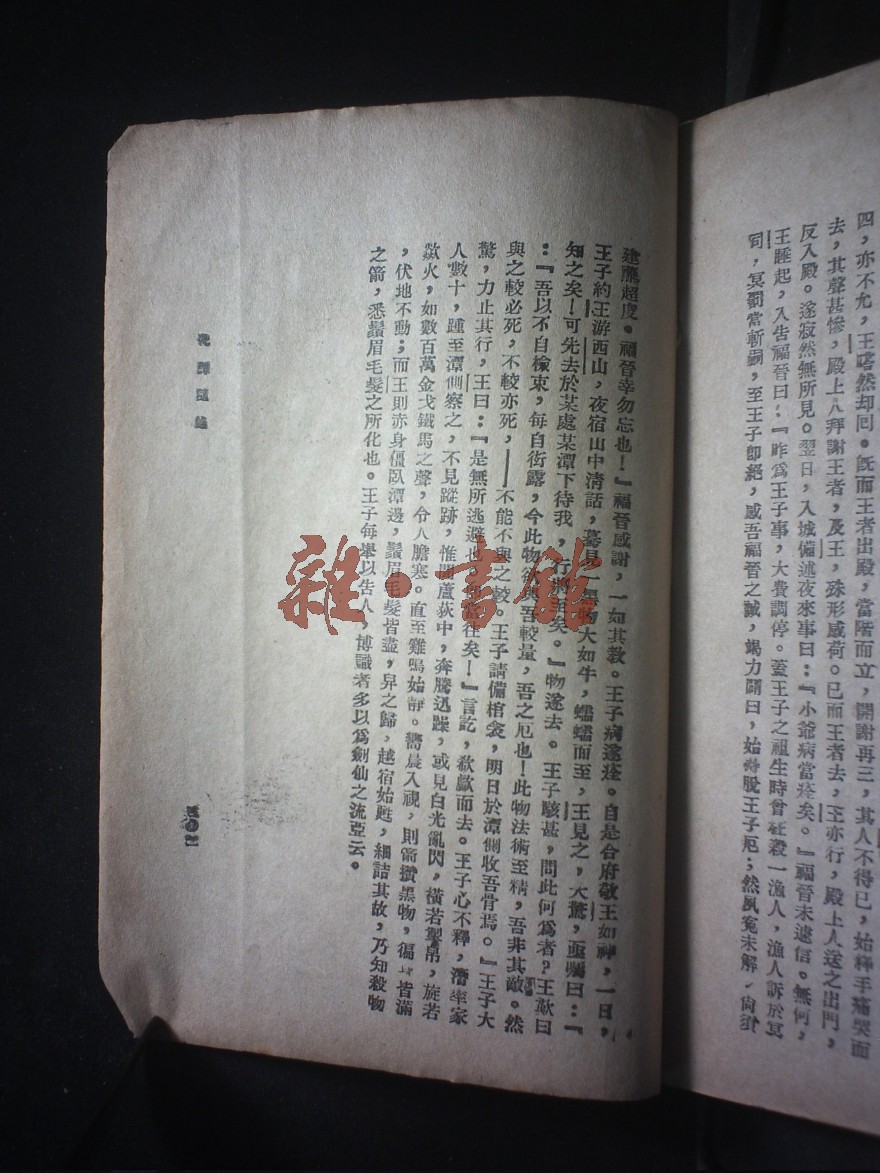 四，亦不允，王嗒然却回。旣而王者出殿，當階而立，開謝再三，其人不得已，始釋手痛哭而
去，其聲甚慘，殿上人拜謝王者，及王，殊形感荷。已而王者去，王亦行，殿上人送之出門，
反入殿。遂寂然無所見。翌日，入城備述夜來事曰：『小爺病當痊矣。』福晉未遽信。無何，
王睡起，入告福晉曰：『昨爲王子事，大費調停。蓋王子之祖生時曾枉殺一漁人，漁人訴於冥
司，冥罰當斬嗣，至王子卽絕，感吾福晉之誠，竭力關曰，始得脫王子厄；然夙寃未解，尙須
建醮超度。福晉幸勿忘也！』福晉感謝，一如其敎。王子病遂痊。自是合府敬王如神，一日，
王子約王游西山，夜宿山中清話，驀見一黑物大如牛，蠕蠕而至，王見之，大驚，亟囑曰：『
知之矣！可先去於某處某潭下待我，行將至矣。』物遂去。王子駭甚，問此何爲者？王歎曰
：『吾以不自檢束，每自衒露，今此物欲與吾較量，吾之厄也！此物法術至精，吾非其敵。然
與之較必死，不較亦死，——不能不與之較。王子請備棺衾，明日於潭側收吾骨焉。』王子大
驚，力止其行，王曰：『是無所逃避也，吾當往矣！』言訖，欷歔而去。王子心不釋，潛率家
人數十，踵至潭側察之，不見蹤跡，惟聞蘆荻中，奔騰迅躁，或見白光亂閃，橫若匹帛，旋若
歘火，如數百萬金戈鐵馬之聲，令人膽塞。直至雞鳴始靜。嚮晨入視，則箭攢黑物，徧身皆滿
，伏地不動；而王則赤身僵臥潭邊，鬚眉毛髮皆盡，舁之歸，越宿始甦，細詰其故，乃知殺物
之箭，悉鬚眉毛髮之所化也。王子每舉以告人，博識者多以爲劍仙之流亞云。
雜·書館